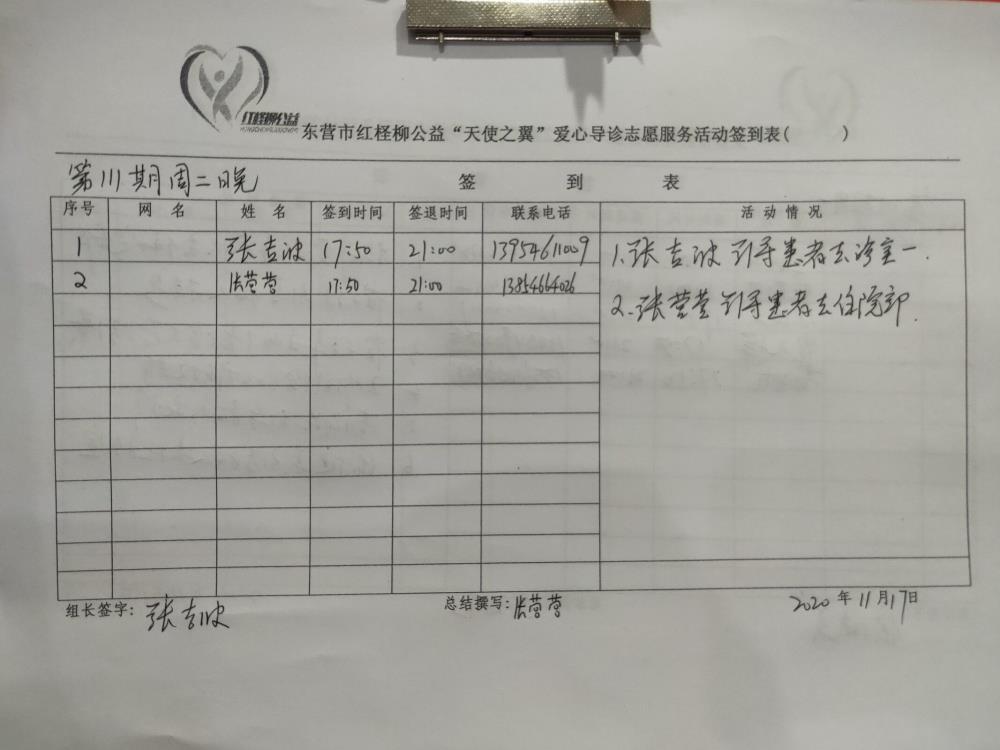 红柽柳公益
东营市红柽柳公益“天使之翼”爱心导诊志愿服务活动签到表( )
第111期周二晚 签 到 表
序号 网 名 姓 名 签到时间 签退时间 联系电话 活 动 情 况
1 张吉波 17:50 21:00 13954611009 1.张吉波引导患者去诊室一.
2 张营营 17:50 21:00 13854664026 2.张营营引导患者去住院部.
组长签字: 张吉波 总结撰写: 张营营 2020年11月17日